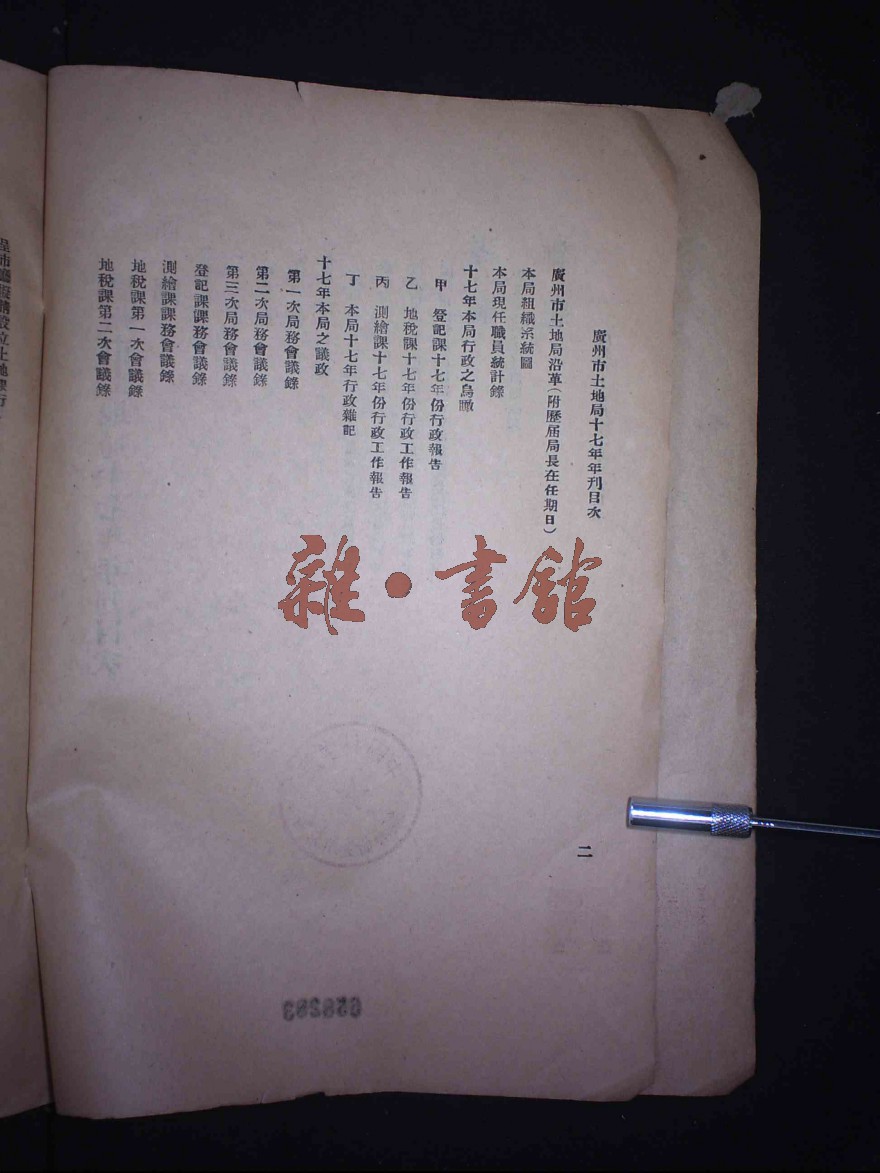 廣州市土地局十七年年刊目次
二
廣州市土地局沿革(附歷届局長在任期日)
本局組織系統圖
本局現任職員統計錄
十七年本局行政之鳥瞰
甲 登記課十七年份行政報告
乙 地稅課十七年份行政工作報告
丙 測繪課十七年份行政工作報告
丁 本局十七年行政雜記
十七年本局之議政
第一次局務會議錄
第二次局務會議錄
第三次局務會議錄
登記課課務會議錄
測繪課課務會議錄
地稅課第一次會議錄
地稅課第二次會議錄
雜·書館